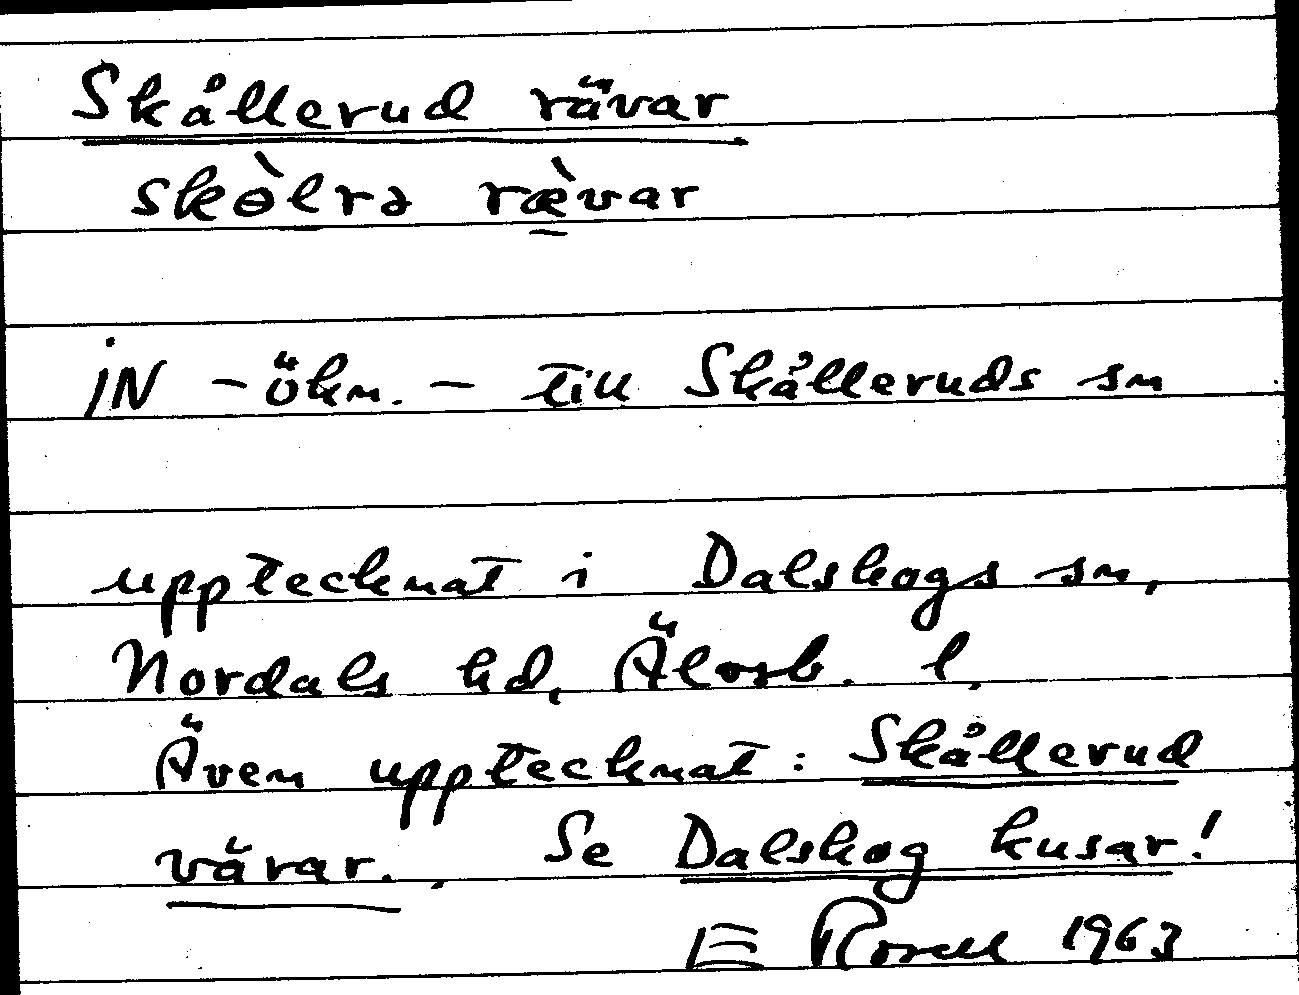 Skållerud rävar
skɵ̀lrə ræ̀var
iN - ökn. - till Skålleruds sn
upptecknat i Dalskogs sn,
Nordals hd, Älvsb. l.
Även upptecknat: Skållerud
värar. Se Dalskog kusar!
E Rosell 1963